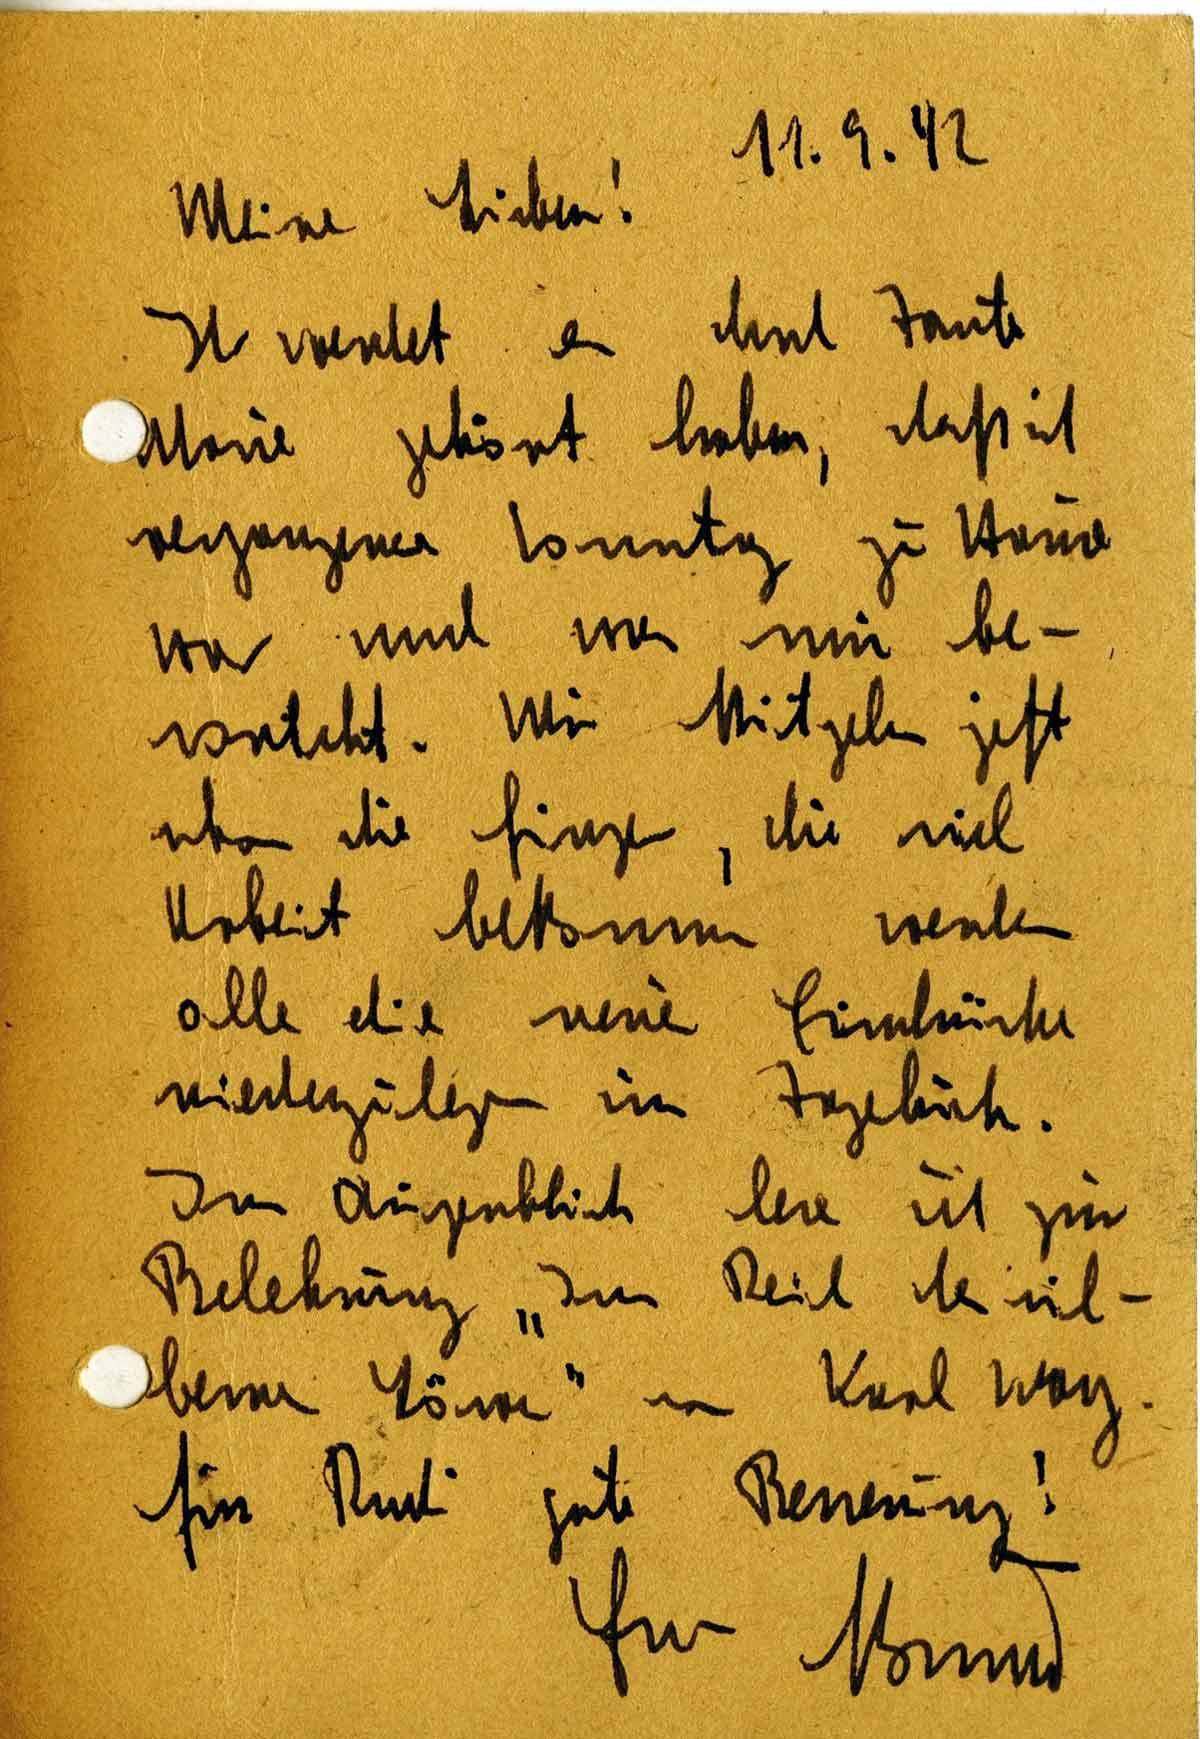 11.9.42
Meine Lieben!
Ihr werdet es durch Tante
Marie gehört haben, daß ich
vergangenen Sonntag zu Hause
war und was mir be-
vorsteht. Wir kitzeln jetzt
aber die Finger, die viel
Arbeit bekommen werden
alle die neuen Eindrücke
niederzulegen im Tagebuch.
Im Augenblick lese ich zur
Belehrung „Im Reich des sil-
bernen Löwen" von Karl May.
Für Rudi gute Besserung!
Euer